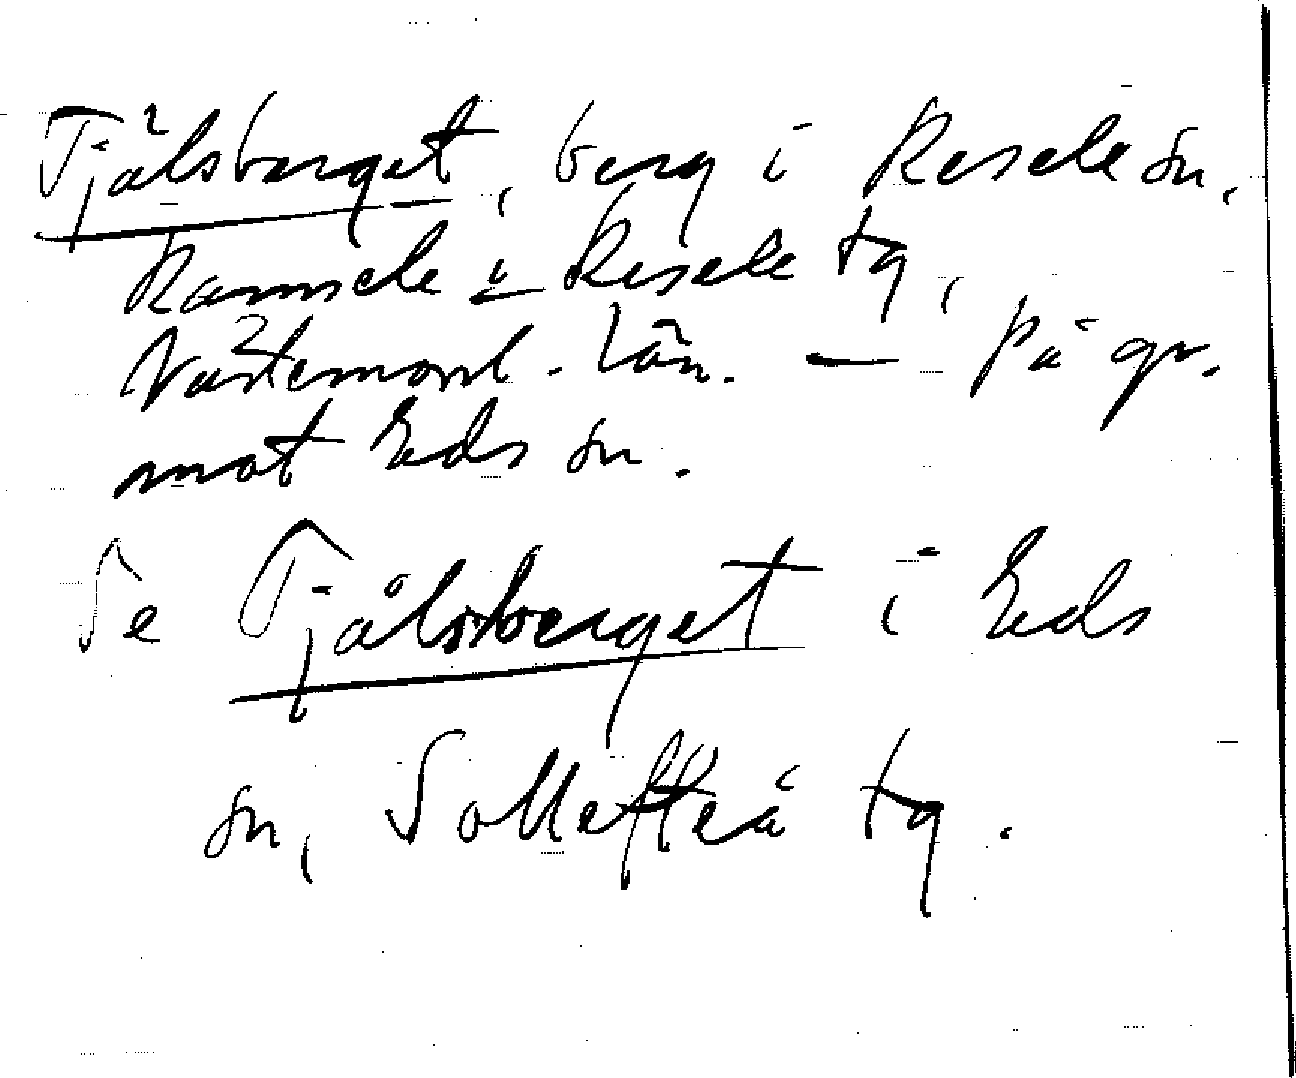 Tjålsberget, berg i Resele sn,
Ramsele o Resele tg,
Västernorrl. län. — På gr.
mot Eds sn.
Se Tjålsberget i Eds
sn, Sollefteå tg.